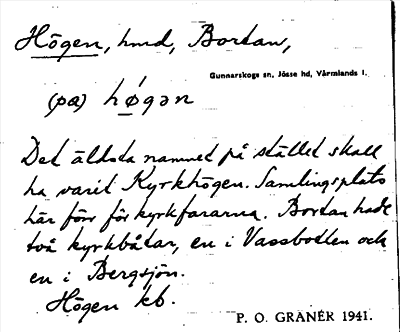 Högen, hmd, Bortan,
Gunnarskogs sn, Jösse hd, Värmlands l.
(pa) hǿgən
Det äldsta namnet på stället skall
ha varit Kyrkhögen. Samlingsplats
här förr för kyrkfararna. Bortan hade
två kyrkbåtar, en i Vassbotten och
en i Bergsjön.
Högen kb.
P. O. GRANÉR 1941.